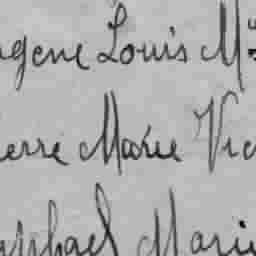 ugene Louis M
ierre Marie Vic
aphael Marie